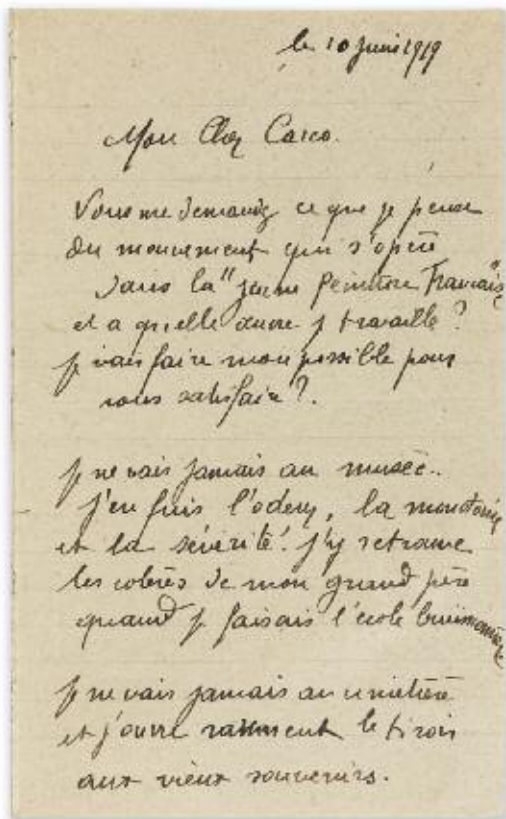 le 10 juin 1919
Mon Cher Carco.
Vous me demandez ce que je pense
du mouvement qui s'opère
dans la "jeune Peinture Française"
et a quelle œuvre je travaille ?
je vais faire mon possible pour
vous satisfaire ?.
je ne vais jamais au musée..
j'en fuis l'odeur, la monotonie
et la sévérité ! j'y retrouve
les colères de mon grand père
quand je faisais l'école buissonnière
je ne vais jamais au cimetière
et j'ouvre rarement le tiroir
aux vieux souvenirs.